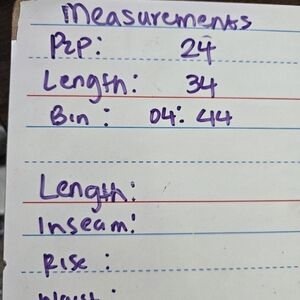 Measurements
P2P: 24
Length: 34
Bin: 04: 44
Length:
Inseam:
Rise:
Waist: